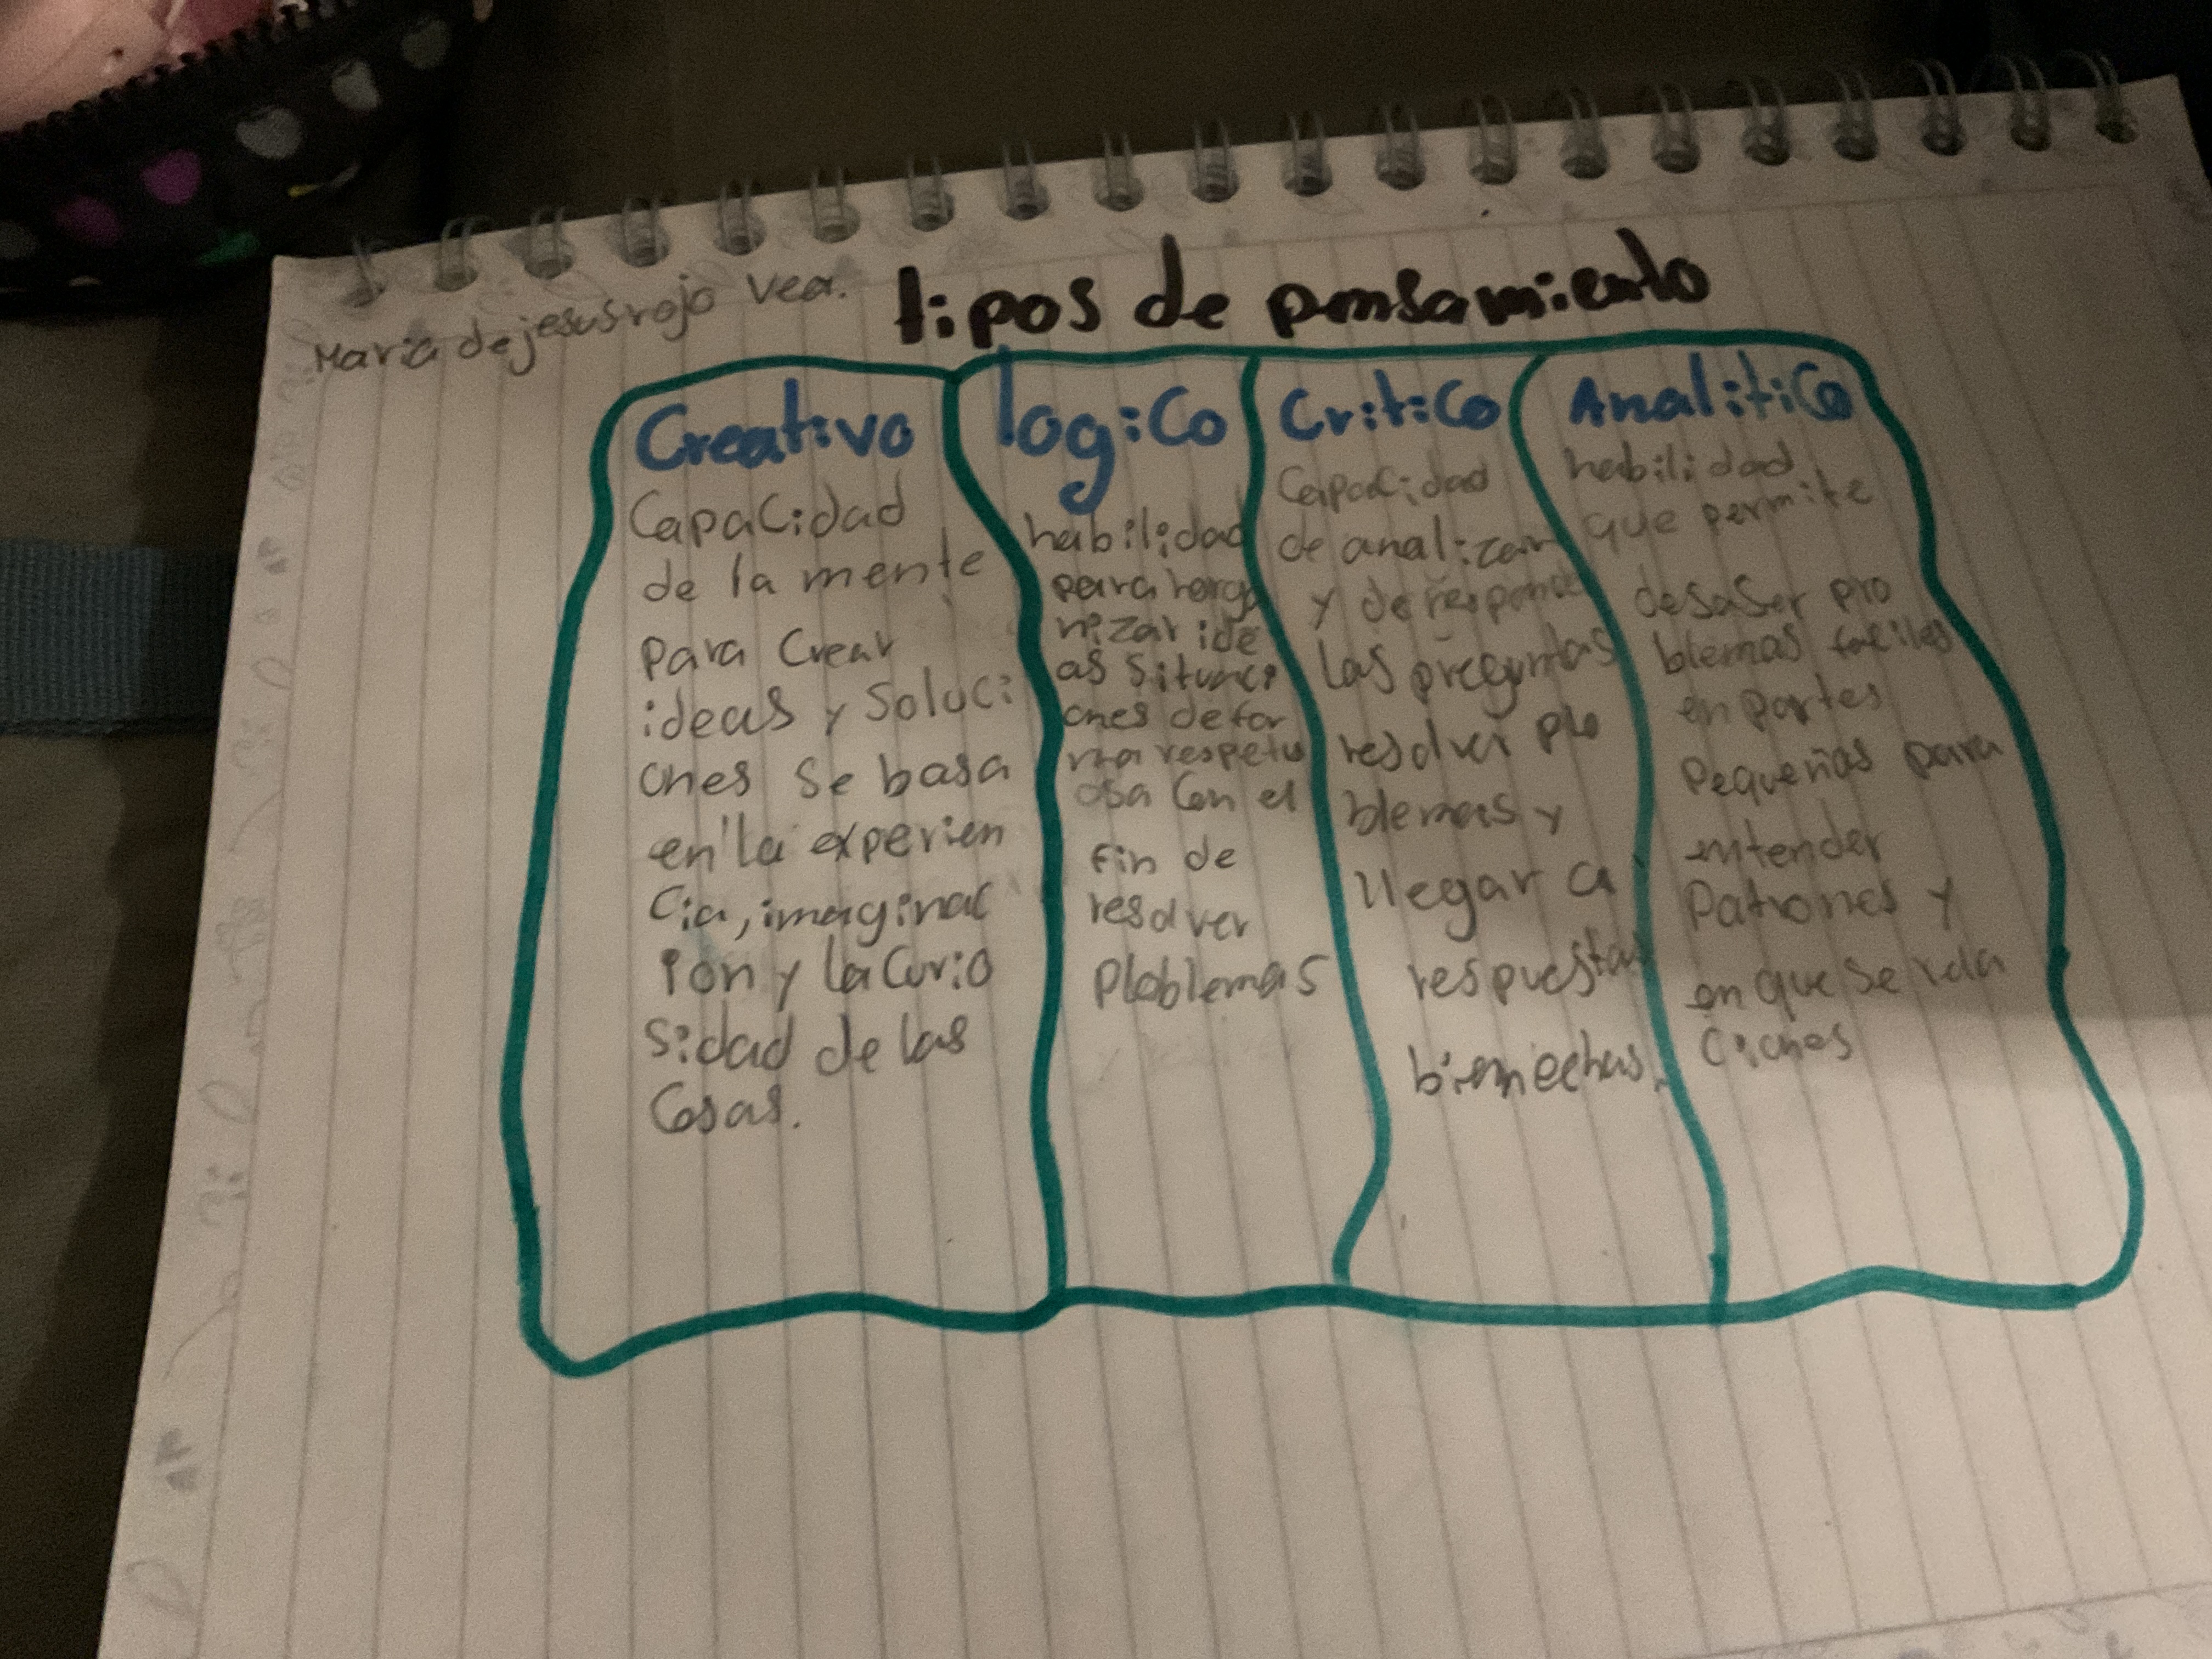 Maria de jesus rojo Vea.
tipos de pensamiento
Creativo
Capacidad
de la mente
para Crear
ideas y Soluci
ones se basa
en la experien
Cia, imaginac
ion y la Curio
Sidad de las
Cosas.
logico
habilidad
para horga
nizar ide
as Situaci
ones de for
ma respetu
osa Con el
fin de
resolver
Ploblemas
Critico
Capacidad
de analizar
y de
las preguntas
resolver plo
blemas y
llegar a
respuestas
bien echas.
Analitico
habilidad
que permite
desaser pro
blemas faciles
en partes
Pequeñas para
entender
Patrones y
en que se rela
Ciones